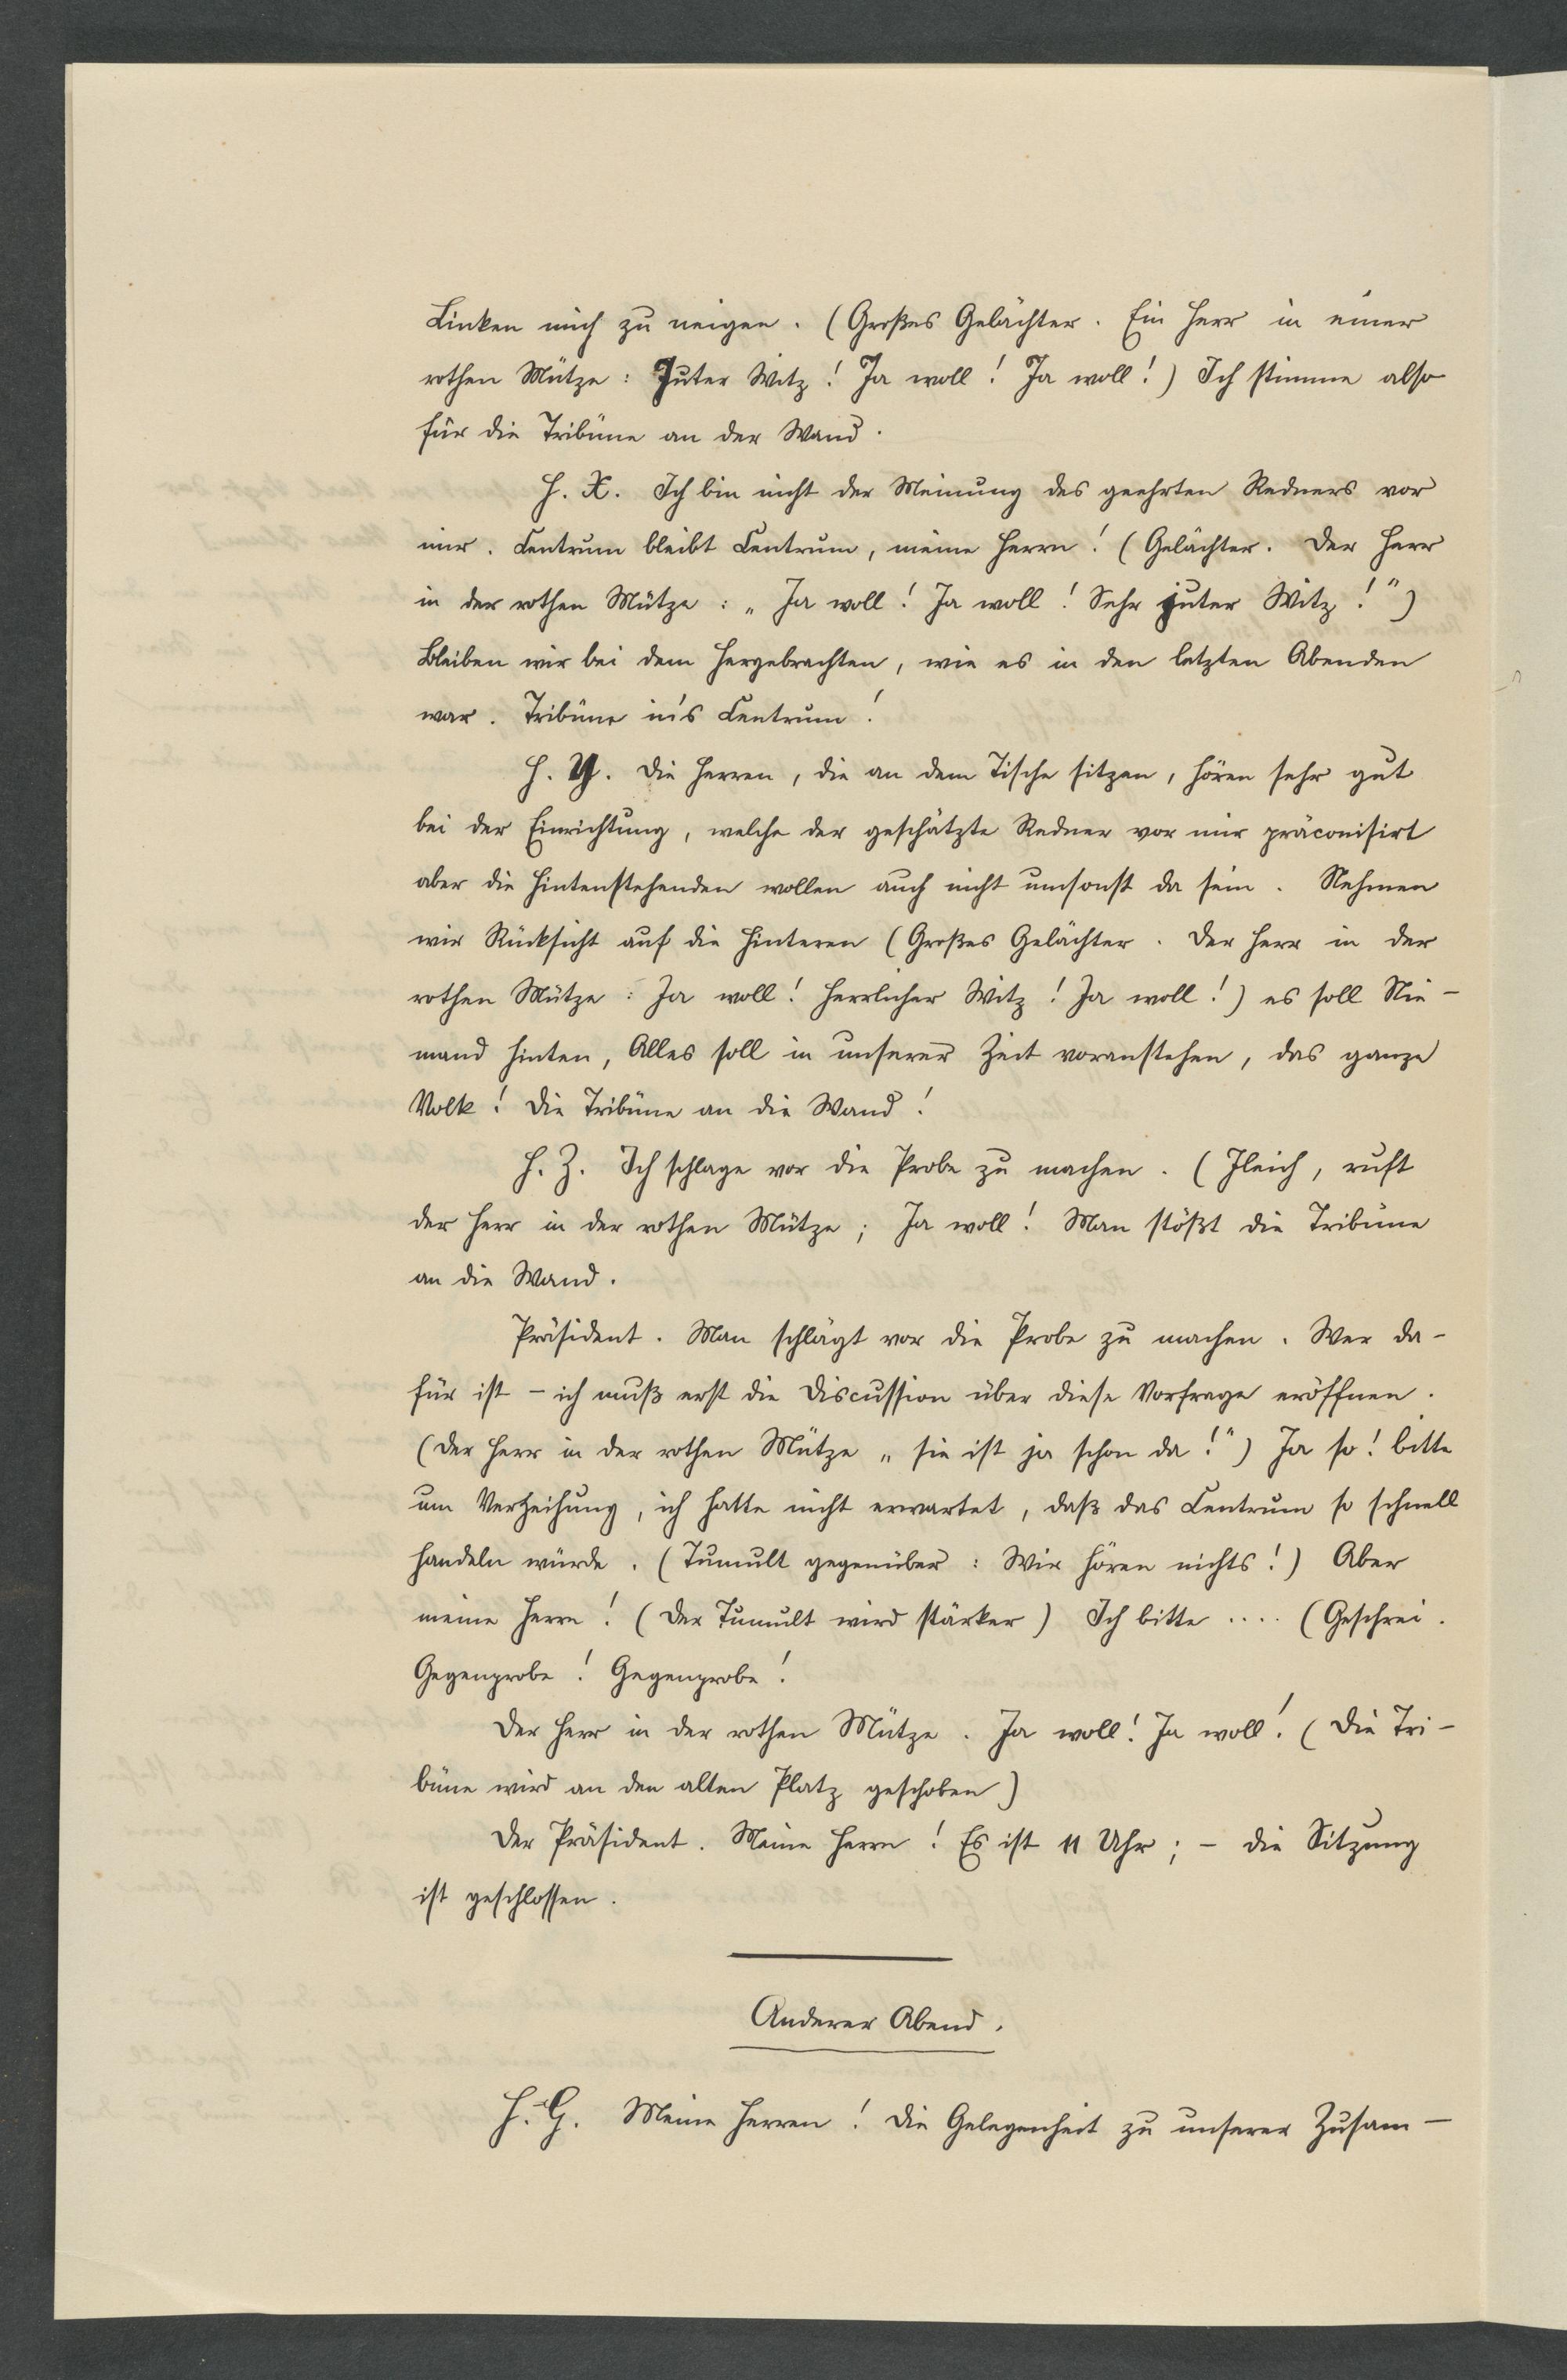 Linken mich zu neigen. (Großes Gelächter. Ein Herr in einer
rothen Mütze: Juter Witz! Ja woll! Ja woll!) Ich stimme also
für die Tribüne an der Wand.
H. X. Ich bin nicht der Meinung des geehrten Redners vor
mir. Centrum bleibt Centrum, meine Herrn! (Gelächter. Der Herr
in der rothen Mütze: „Ja woll! Ja woll! Sehr juter Witz!")
Bleiben wir bei dem Hergebrachten, wie es in den letzten Abenden
war. Tribüne in's Centrum!
H. Y. Die Herren, die an dem Tische sitzen, hören sehr gut
bei der Einrichtung, welche der geschätzte Redner vor mir präconisirt
aber die Hintenstehenden wollen auch nicht umsonst da sein. Nehmen
wir Rücksicht auf die Hinteren (Großes Gelächter. Der Herr in der
rothen Mütze: Ja woll! Herrlicher Witz! Ja woll!) es soll Nie-
mand hinten, Alles soll in unserer Zeit voranstehen, das ganze
Volk! Die Tribüne an die Wand!
H. Z. Ich schlage vor die Probe zu machen. (Jleich, ruft
der Herr in der rothen Mütze; Ja woll! Man stößt die Tribüne
an die Wand.
Präsident. Man schlägt vor die Probe zu machen. Wer da-
für ist – ich muß erst die Discussion über diese Vorfrage eröffnen.
(Der Herr in der rothen Mütze „sie ist ja schon da!") Ja so! bitte
um Verzeihung, ich hatte nicht erwartet, daß das Centrum so schnell
handeln würde. (Tumult gegenüber: Wir hören nichts!) Aber
meine Herrn! (Der Tumult wird stärker) Ich bitte .... (Geschrei.
Gegenprobe! Gegenprobe!
Der Herr in der rothen Mütze. Ja woll! Ja woll! (Die Tri-
büne wird an den alten Platz geschoben)
Der Präsident. Meine Herrn! Es ist 11 Uhr; – die Sitzung
ist geschlossen.
Anderer Abend.
H. G. Meine Herren! Die Gelegenheit zu unserer Zusam-